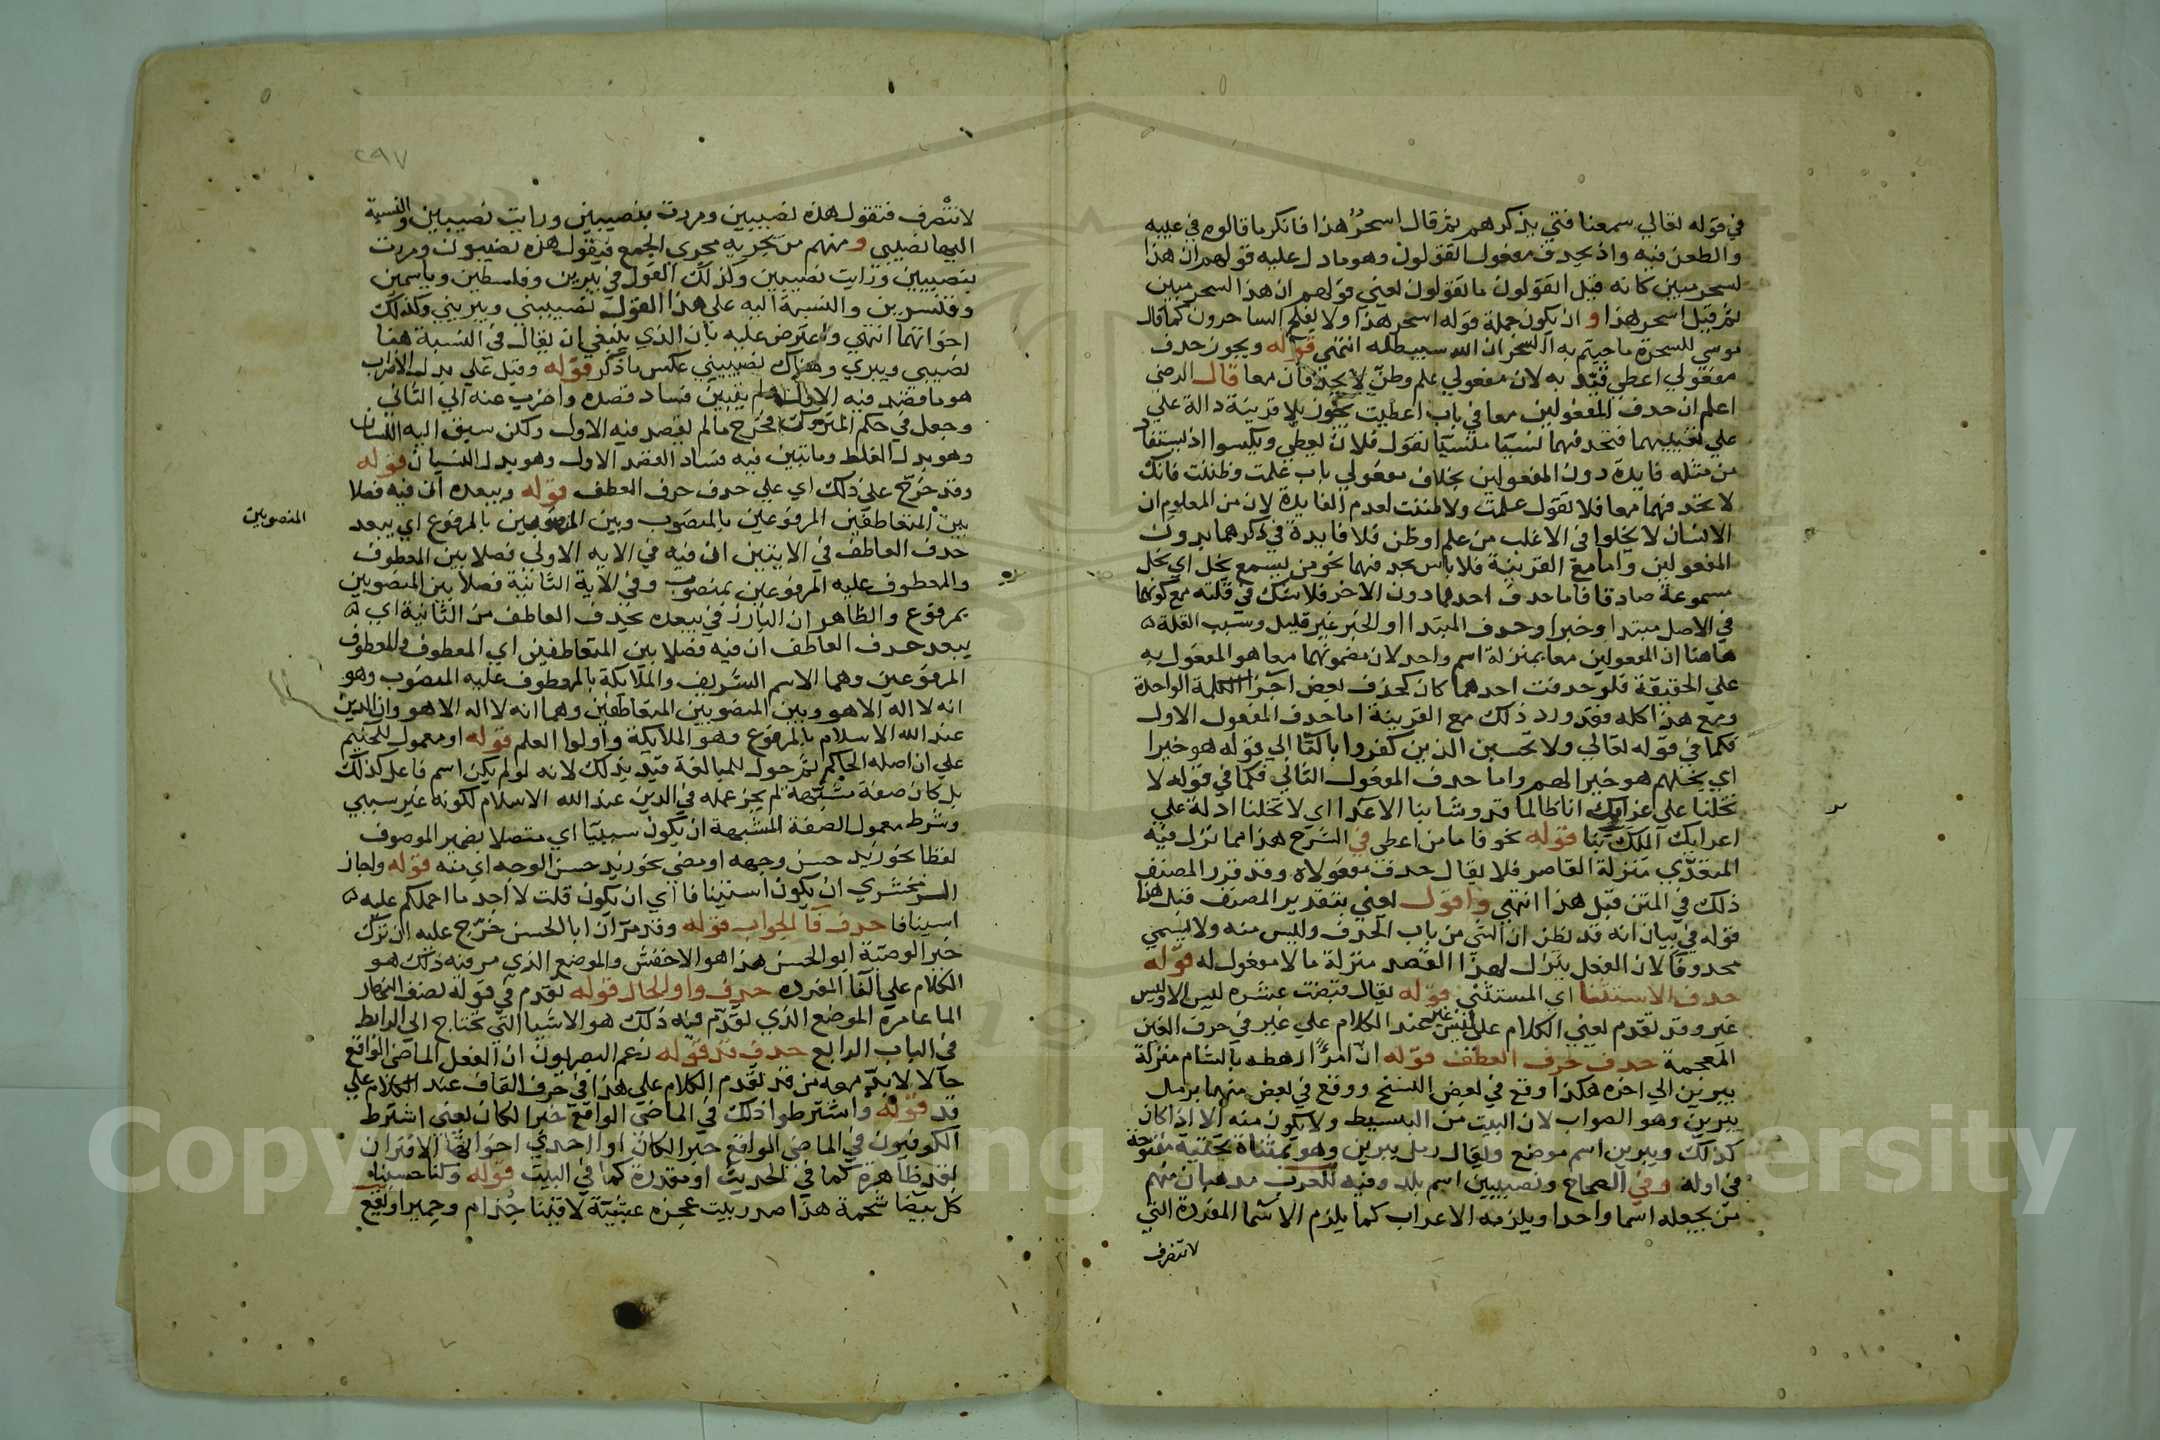 في قوله تعالي سمعنا فتي يذكرهم ثم قال اسحرٌ هذا فانكر ما قالوه في عيبه
والطعن فيه واذ يحذف مفعول اتقولون وهو ما دل عليه قولهم ان هذا
لسحر مبين كانه قيل اتقولون ما تقولون يعني قولهم ان هذا السحر مبين
ثم قيل اسحر هذا و ان يكون جملة قوله اسحر هذا ولا يفلح الساحرون كما قال
موسي للسحرة ما جيتم به السحر ان الله سيبطله انتهي قوله ويجوز حذف
مفعولي اعطي قيد به لان مفعولي علم وظن لا يحذفان معا قال الرضي
اعلم ان حذف المفعولين معا في باب اعطيت يجوز بلا قرينة دالة علي
علي تعيينهما فتحذفهما نسيا منسيا تقول فلان يعطي ويكسوا اذ يستفاد
من مثله فايدة دون المفعولين بخلاف مفعولي باب علمت وظننت فانك
لا تحذفهما معا فلا تقول علمت ولا ظننت لعدم الفايدة لان من المعلوم ان
الانسان لا يخلوا في الاغلب من علم او ظن فلا فايدة في ذكرهما بدون
المفعولين واما مع القرينة فلا باس بحذفهما نحو من يسمع يخل اي يخل
مسموعة صادقا فاما حذف احدهما دون الاخر فلا شك في قلته مع كونهما
في الاصل مبتدا وخبرا وحذف المبتدا او الخبر غير قليل وسبب القلة
هاهنا ان المفعولين معا بمنزلة اسم واحد لان مضمونهما معا هو المفعول به
علي الحقيقة فلو حذفت احدهما كان كحذف بعض اجزا الكلمة الواحدة
ومع هذا كله فقد ورد ذلك مع القرينة اما حذف المفعول الاول
فكما في قوله تعالي ولا تحسبن الذين كفروا بالتا الي قوله هو خيرا
اي بخلهم هو خيرا لهم واما حذف المفعول الثاني فكما في قوله لا
تخلنا علي غرايك انا طالما قد وشا بنا الاعدا اي لا تخلنا ادلة علي
اغرايك الملك بنا قوله نحو فاما من اعطي في الشرح هذا مما نزل فيه
المتعدي منزلة القاصر فلا يقال حذف مفعولاه وقد قرر المصنف
ذلك في المتن قبل هذا انتهي واقول يعني بتقدير المصنف قبل هذا
قوله في بيان انه قد يظن ان الشي من باب الحذف وليس منه ولا يسمي
محذوفا لان الفعل ينزل لهذا القصد منزلة ما لا مفعول له قوله
حذف الاستثنا اي المستثني قوله يقال قبضت عشرة ليس الا وليس
غير وقد تقدم يعني الكلام علي ليس غير عند الكلام علي غير في حرف الغين
المعجمة حذف حرف العطف قوله ان امرًا رهطه بالشام منزلة
بيبرين الي اخره هكذا وقع في بعض النسخ ووقع في بعض منها برمل
يبرين وهو الصواب لان البيت من البسيط ولا يكون منه الا اذا كان
كذلك ويبرين اسم موضع ويقال رمل يبرين وهو بمثناة تحتية مفتوحة
في اوله وفي الصحاح ونصيبين اسم بلد وفيه للعرب مذهبان منهم
من يجعله اسما واحدا ويلزمه الاعراب كما يلزم الاسما المفردة التي
لا تنصرف
٢٩٧
لا تنصرف فتقول هذه نصيبين ومررت بنصيبين ورايت نصيبين والنسبة
اليها نصيبي ومنهم من يجريه مجري الجمع فيقول هذه نصيبون ومررت
بنصيبين ورايت نصيبين وكذلك القول في يبرين وفلسطين وياسمين
وقنسرين والنسبة اليه علي هذا القول نصيبيني ويبريني وكذلك
اخواتها انتهي واعترض عليه بان الذي ينبغي ان يقال في النسبة هنا
نصيبي ويبري وهناك نصيبيني عكس ما ذكر قوله وقيل علي بدل الاضراب
هو ما قصد فيه الاول ولم يتبين فساد قصده واضرب عنه الي الثاني
وجعل في حكم المتروك فخرج ما لم يقصد فيه الاول ولكن سبق اليه اللسان
وهو بدل الغلط وما تبين فيه فساد القصد الاول وهو بدل النسيان قوله
وقد خرج علي ذلك اي علي حذف حرف العطف قوله ويبعده ان فيه فصلا
بين المتعاطفين المرفوعين بالمنصوب وبين المنصوبين بالمرفوع اي يبعد
المنصوبين
حذف العاطف في الايتين ان فيه في الايه الاولي فصلا بين المعطوف
والمعطوف عليه المرفوعين بمنصوب وفي الاية الثانية فصلا بين المنصوبين
بمرفوع والظاهر ان البارز في يبعده لحذف العاطف من الثانية اي
يبعد حذف العاطف ان فيه فصلا بين المتعاطفين اي المعطوف والمعطوف
المرفوعين وهما الاسم الشريف والملايكة بالمعطوف عليه المنصوب وهو
انه لا اله الا هو وبين المنصوبين المتعاطفين وهما انه لا اله الا هو وان الدين
عند الله الاسلام بالمرفوع وهو الملايكة واولوا العلم قوله او معمول للحكيم
علي ان اصله الحاكم ثم حول للمبالغة قيد بذلك لانه لو لم يكن اسم فاعل كذلك
بل كان صفة مشبهة لم يجز عمله في الدين عند الله الاسلام لكونه غير سببي
وشرط معمول الصفة المشبهة ان يكون سببيا اي متصلا بضمير الموصوف
لفظا نحو زيد حسن وجهه او معني نحو زيد حسن الوجه اي منه قوله واجاز
الزمخشري ان يكون استينافا اي ان يكون قلت لا اجد ما احملكم عليه
استينافا حذف فا الجواب قوله وقد مر ان ابا الحسن خرج عليه ان ترك
خيرا الوصية ابو الحسن هذا هو الاخفش والموضع الذي مر فيه ذلك هو
الكلام علي الفا المفرده حذف واو الحال قوله تقدم في قوله نصف النهار
الما عامره الموضع الذي تقدم فيه ذلك هو الاشيا التي تحتاج الي الرابط
في الباب الرابع حذف قد قوله زعم البصريون ان الفعل الماضي الواقع
حالا لا بد معه من قد تقدم الكلام علي هذا في حرف القاف عند الكلام علي
قد قوله واشترطوا ذلك في الماضي الواقع خبرا لكان يعني اشترط
الكوفيون في الماضي الواقع خبرا لكان او احدي اخواتها الاقتران
بقد ظاهرة كما في الحديث او مقدرة كما في البيت قوله وكنا حسبنا
كل بيضا شحمة هذا صدر بيت عجزه عشية لاقينا جذام وحميرا وقع